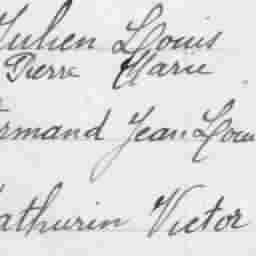 Julien Louis
Pierre Marie
Armand Jean Louis
Mathurin Victor